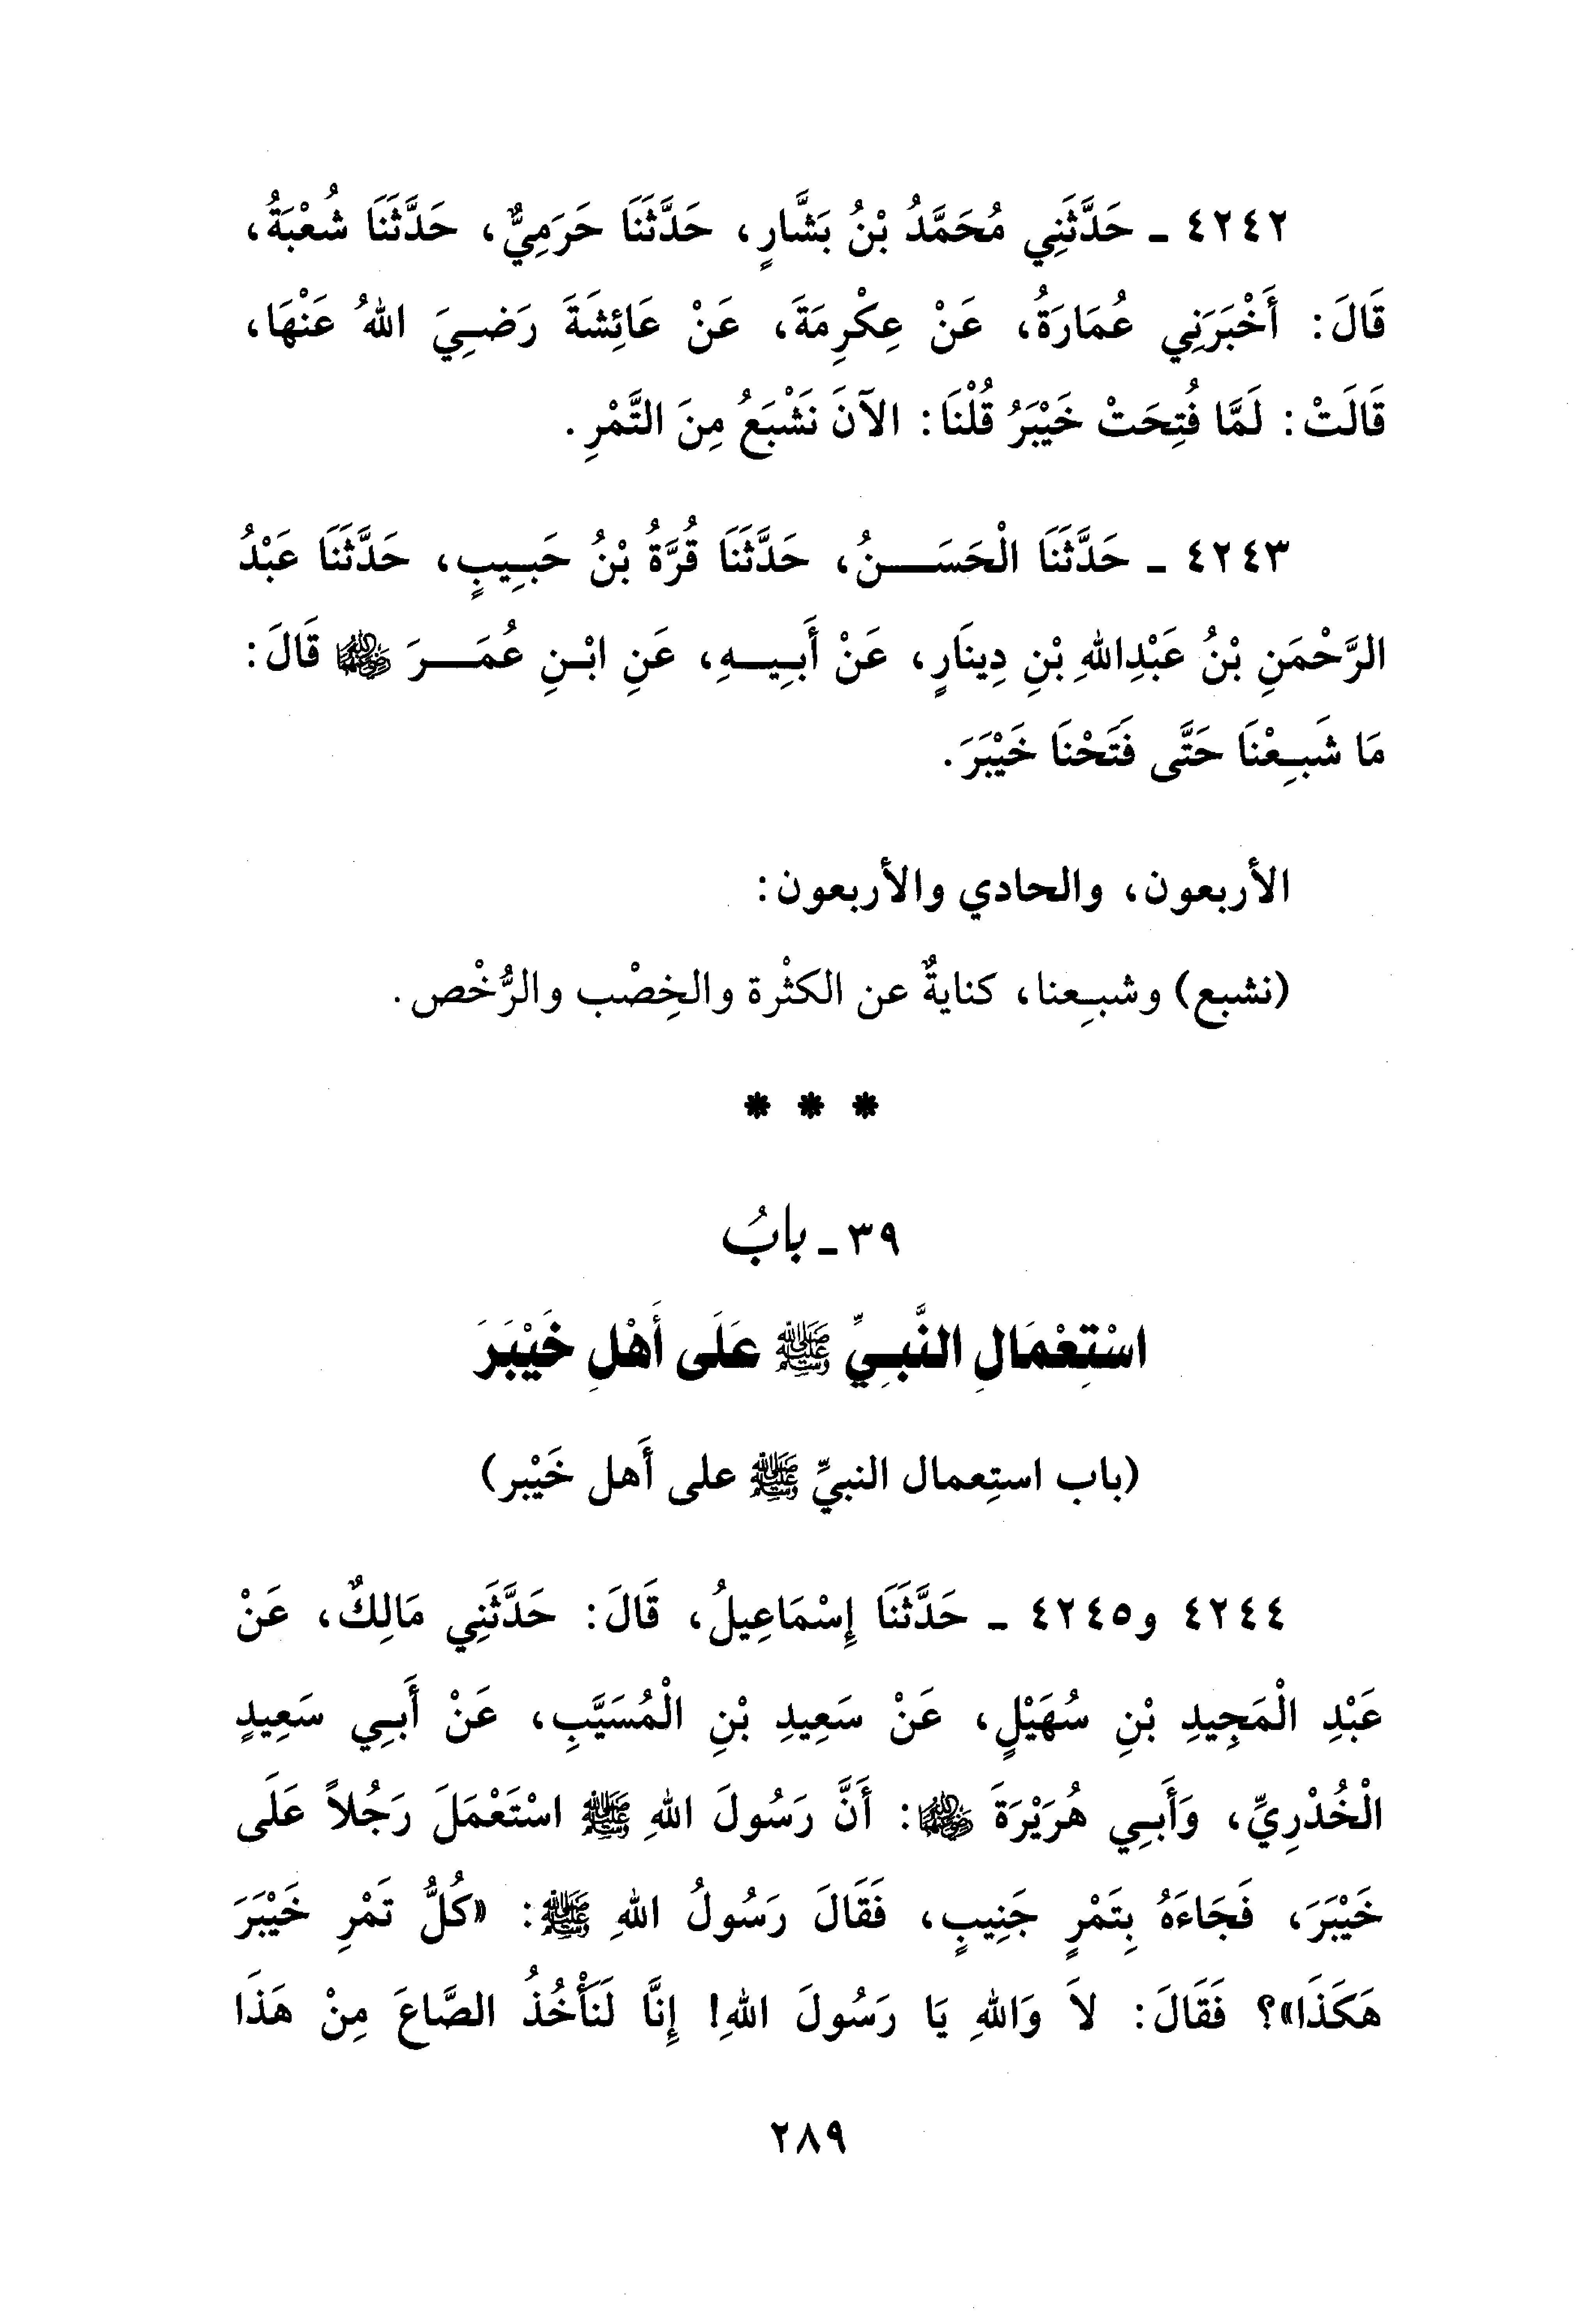 ٤٢٤٢ ـ حَدَّثَنِي مُحَمَّدُ بْنُ بَشَّارٍ، حَدَّثَنَا حَرَمِيٌّ، حَدَّثَنَا شُعْبَةُ،
قَالَ: أَخْبَرَنِي عُمَارَةُ، عَنْ عِكْرِمَةَ، عَنْ عَائِشَةَ رَضِيَ اللهُ عَنْهَا،
قَالَتْ: لَمَّا فُتِحَتْ خَيْبَرُ قُلْنَا: الآنَ نَشْبَعُ مِنَ التَّمْرِ.
٤٢٤٣ ـ حَدَّثَنَا الْحَسَنُ، حَدَّثَنَا قُرَّةُ بْنُ حَبِيبٍ، حَدَّثَنَا عَبْدُ
الرَّحْمَنِ بْنُ عَبْدِاللهِ بْنِ دِينَارٍ، عَنْ أَبِيهِ، عَنِ ابْنِ عُمَرَ ﵄ قَالَ:
مَا شَبِعْنَا حَتَّى فَتَحْنَا خَيْبَرَ.
الأربعون، والحادي والأربعون:
(نشبع) وشبِعنا، كنايةٌ عن الكثْرة والخِصْب والرُّخْص.
* * *
٣٩ ـ بابُ
اسْتِعْمَالِ النَّبِيِّ ﷺ عَلَى أَهْلِ خَيْبَرَ
(باب استِعمال النبيِّ ﷺ على أَهل خَيْبر)
٤٢٤٤ و٤٢٤٥ ـ حَدَّثَنَا إِسْمَاعِيلُ، قَالَ: حَدَّثَنِي مَالِكٌ، عَنْ
عَبْدِ الْمَجِيدِ بْنِ سُهَيْلٍ، عَنْ سَعِيدِ بْنِ الْمُسَيَّبِ، عَنْ أَبِي سَعِيدٍ
الْخُدْرِيِّ، وَأَبِي هُرَيْرَةَ ﵄: أَنَّ رَسُولَ اللهِ ﷺ اسْتَعْمَلَ رَجُلاً عَلَى
خَيْبَرَ، فَجَاءَهُ بِتَمْرٍ جَنِيبٍ، فَقَالَ رَسُولُ اللهِ ﷺ: «كُلُّ تَمْرِ خَيْبَرَ
هَكَذَا»؟ فَقَالَ: لاَ وَاللهِ يَا رَسُولَ اللهِ! إِنَّا لَنَأْخُذُ الصَّاعَ مِنْ هَذَا
٢٨٩